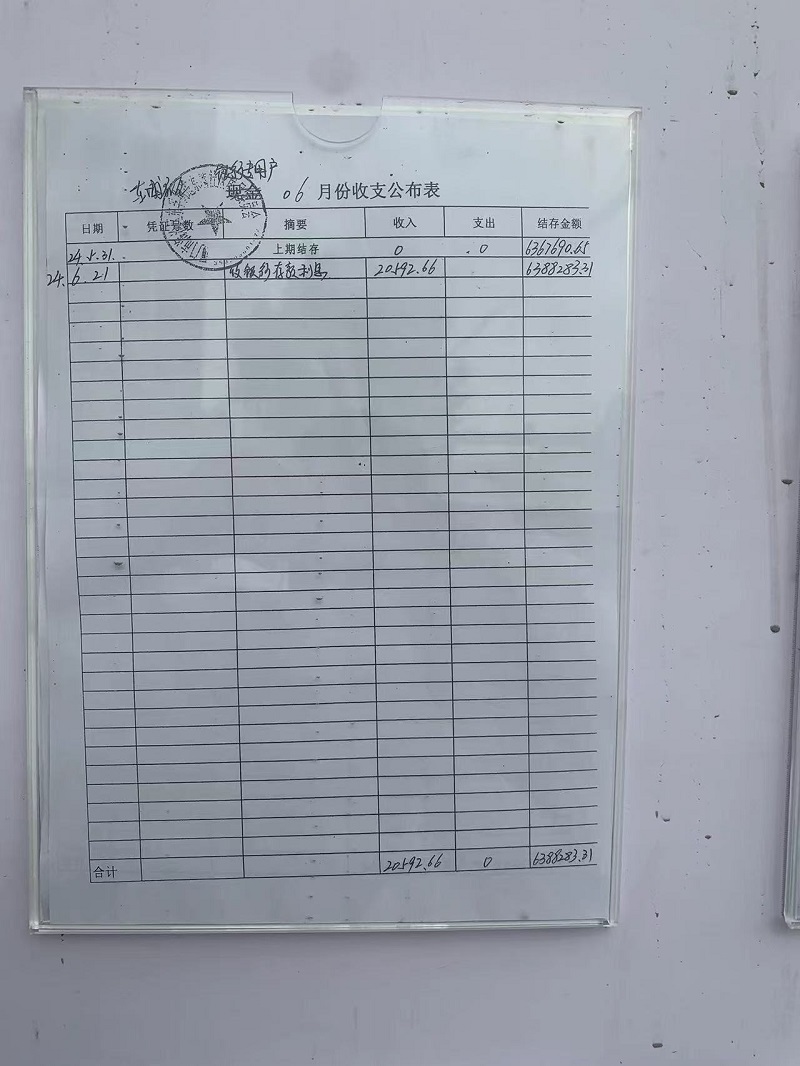 银行专用户
现金 06 月份收支公布表
日期 凭证号数 摘要 收入 支出 结存金额
24.5.31. 上期结存 0 0 6367690.65
24.6.21 收银行存款利息 20592.66 6388283.31
合计 20592.66 0 6388283.31